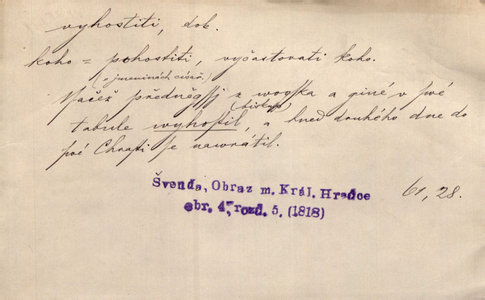 vyhostiti, dok.
koho = pohostiti, vyčastovati koho.
(o jmeninách císař.)
Načež přednější z wojska a giné v své
(biskup)
tabule wyhostil, a hned druhého dne do
své Chrasti se nawrátil.
Švenda, Obraz m. Král. Hradce
obr. 4, rozd. 5. (1818)
61, 28.